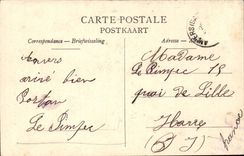 CARTE POSTALE
POSTKAART
Correspondance — Briefwisseling
Adresse
Anvers
arivé bien
Portan
Le Pimpec
Madame
Le Pimpec 15
quai de Lille
Havre
(S I)
france